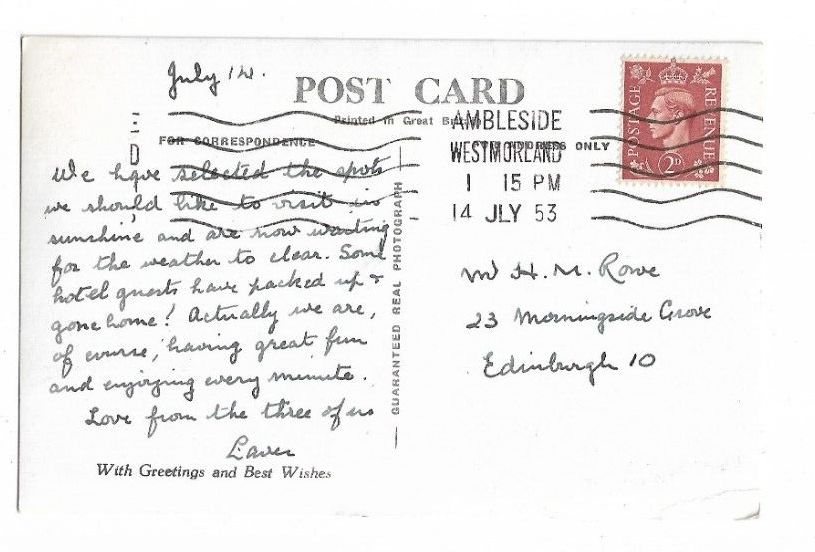 July 14.
POST CARD
Printed in Great Britain
FOR CORRESPONDENCE
ADDRESS ONLY
AMBLESIDE
WESTMORLAND
1 15 PM
14 JLY 53
POSTAGE
REVENUE
2D
We have selected the spots
we should like to visit in
sunshine and are now waiting
for the weather to clear. Some
hotel guests have packed up &
gone home! Actually we are,
of course, having great fun
and enjoying every minute.
Love from the three of us
With Greetings and Best Wishes
GUARANTEED REAL PHOTOGRAPH
Mr H. M. Rowe
23 Morningside Grove
Edinburgh 10